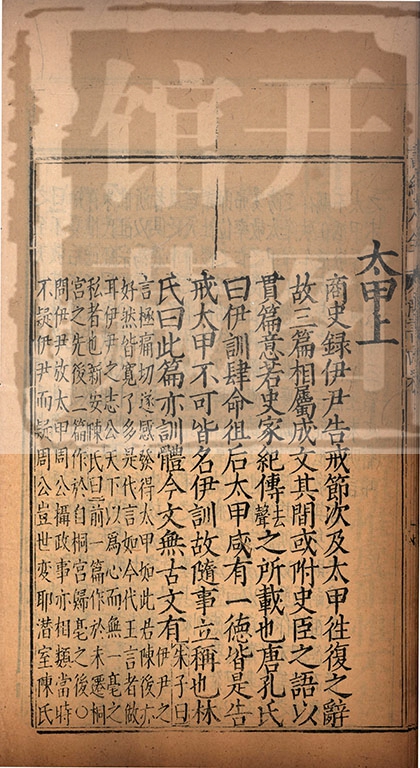 太甲上
商史錄伊尹告戒節次及太甲徃復之辭
故三篇相屬成文其間或附史臣之語以
貫篇意若史家紀傳去聲之所載也唐孔氏
曰伊訓肆命徂后太甲咸有一德皆是告
戒太甲不可皆名伊訓故隨事立稱也林
氏曰此篇亦訓體今文無古文有朱子曰伊尹之
言極痛切遂感發得太甲如此君陳後亦
好然皆寬了多是代言如今代王言者做
耳伊尹之志公天下以爲心而無一毫之
私者也新安陳氏曰前一篇作於未遷桐
宮之先後二篇作於自桐宮歸亳之後〇
問伊尹放太甲周公攝政事亦相類當時
不疑伊尹而疑周公豈世変耶潜室陳氏